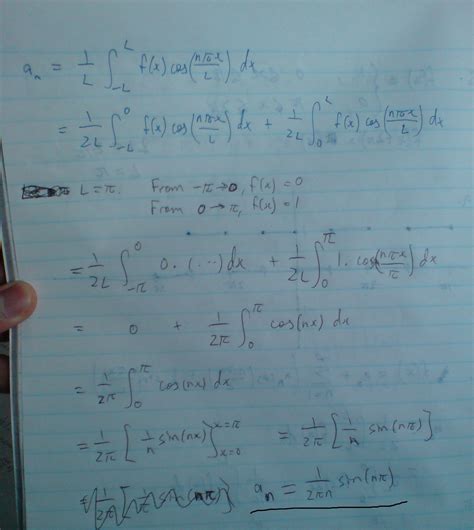 a_n = 1/L ∫_{-L}^{L} f(x) cos(nπx/L) dx
= 1/2L ∫_{-L}^{0} f(x) cos(nπx/L) dx + 1/2L ∫_{0}^{L} f(x) cos(nπx/L) dx
L = π. From -π→0, f(x) = 0
From 0→π, f(x) = 1
= 1/2L ∫_{-π}^{0} 0·(···) dx + 1/2L ∫_{0}^{π} 1·cos(nπx/π) dx
= 0 + 1/2π ∫_{0}^{π} cos(nx) dx
= 1/2π ∫_{0}^{π} cos(nx) dx
= 1/2π [1/n sin(nx)]_{x=0}^{x=π} = 1/2π [1/n sin(nπ)]
a_n = 1/2πn sin(nπ)